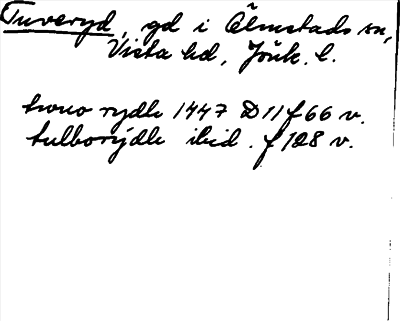 Tuveryd, gd i Ölmstads sn,
Vista hd, Jönk. l.
twuo rydh 1447 D 11 f 66 v.
tulborydh ibid. f 128 v.